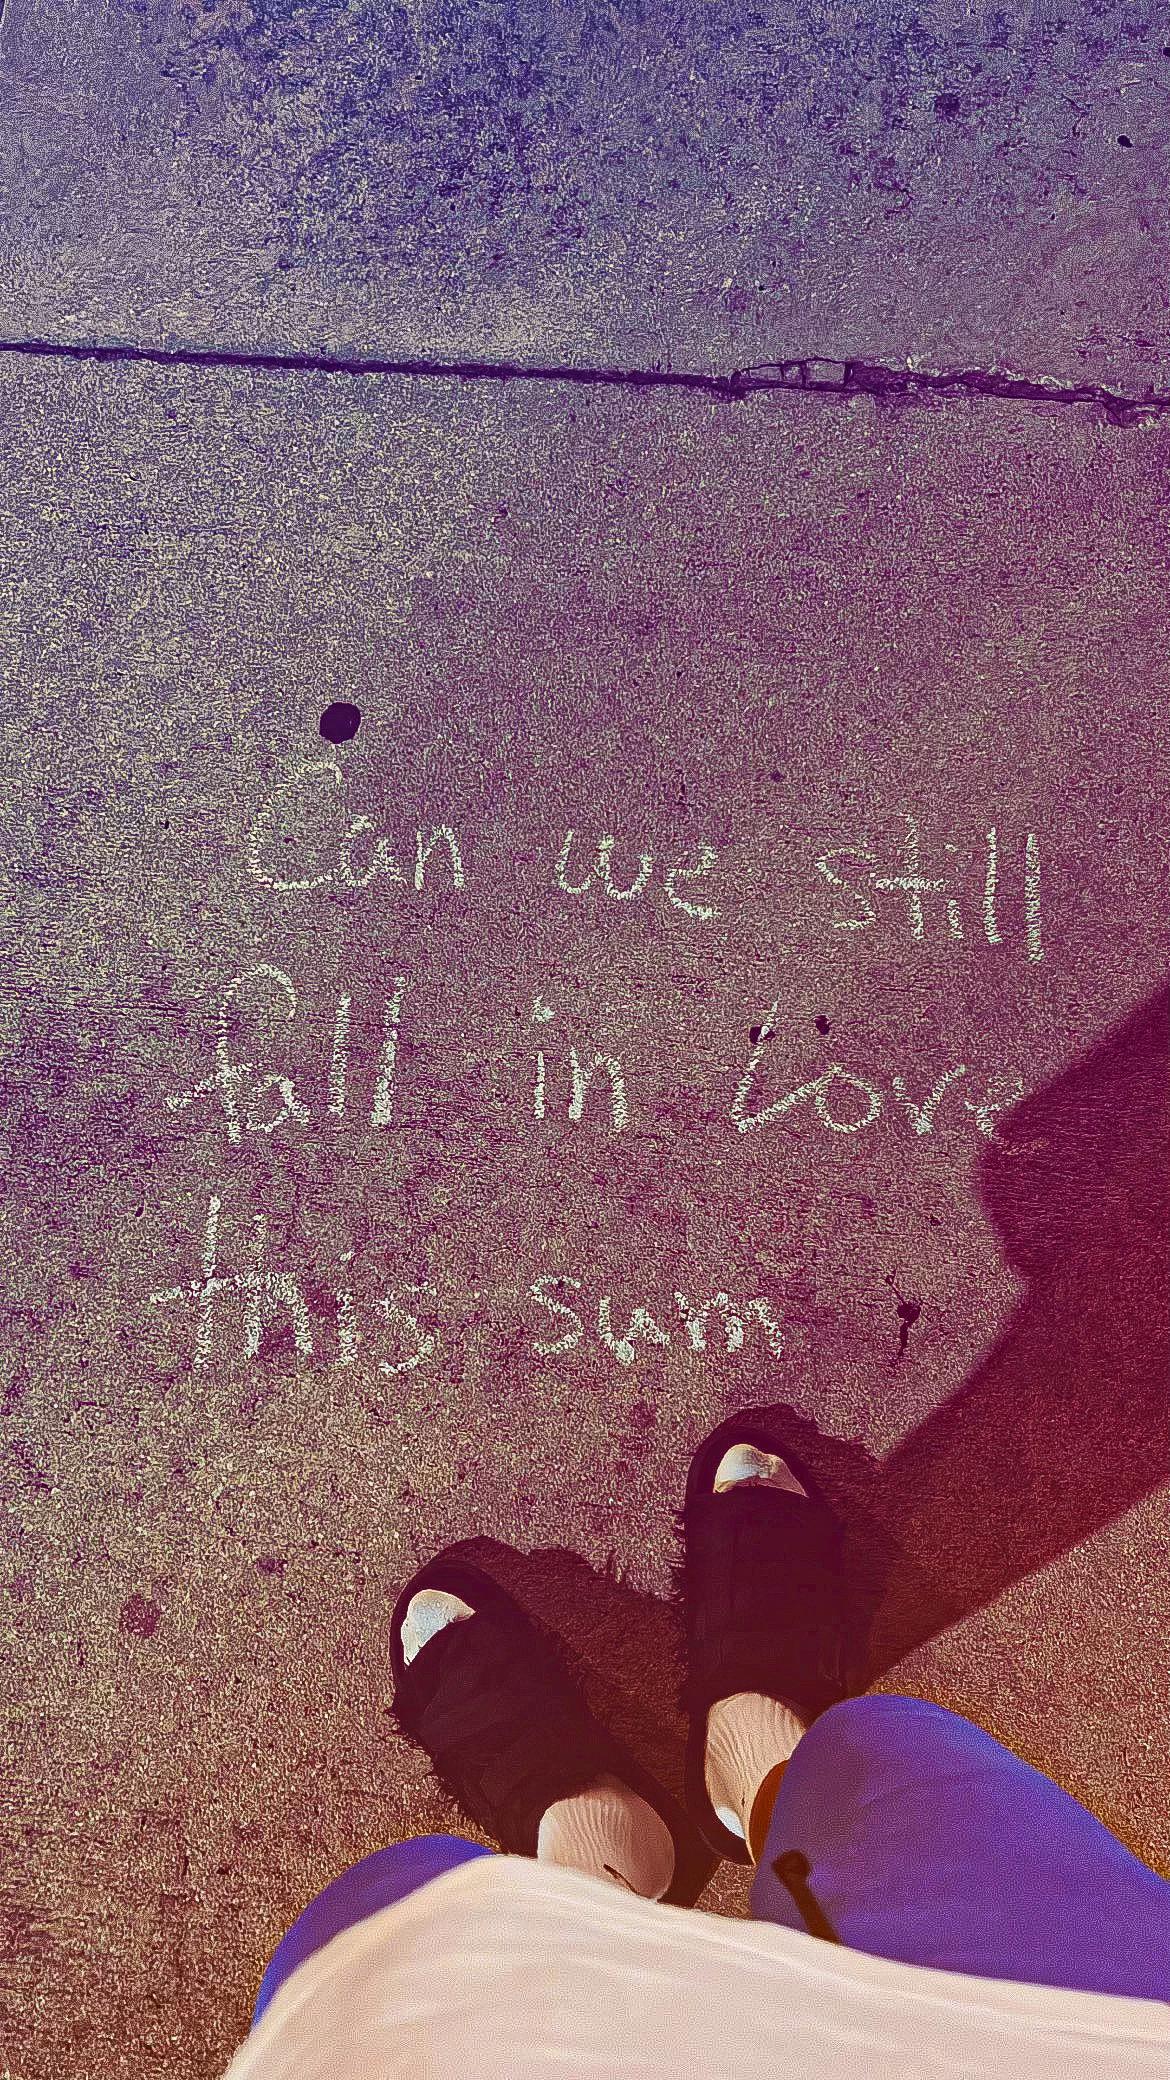 Can we still
fall in love
this sum